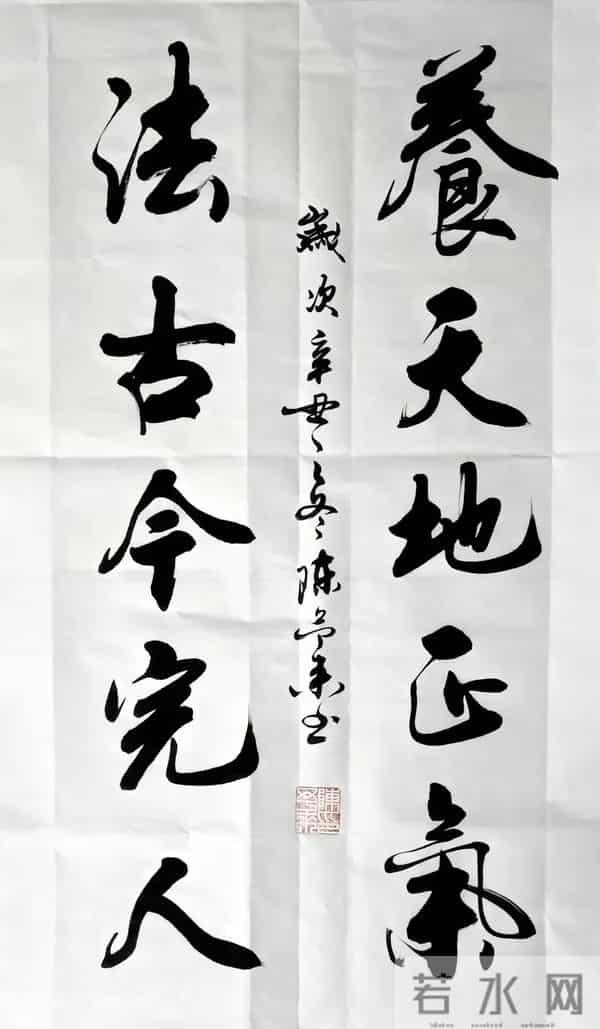 養天地正氣
法古今完人
歲次辛丑冬陈
书
若水网